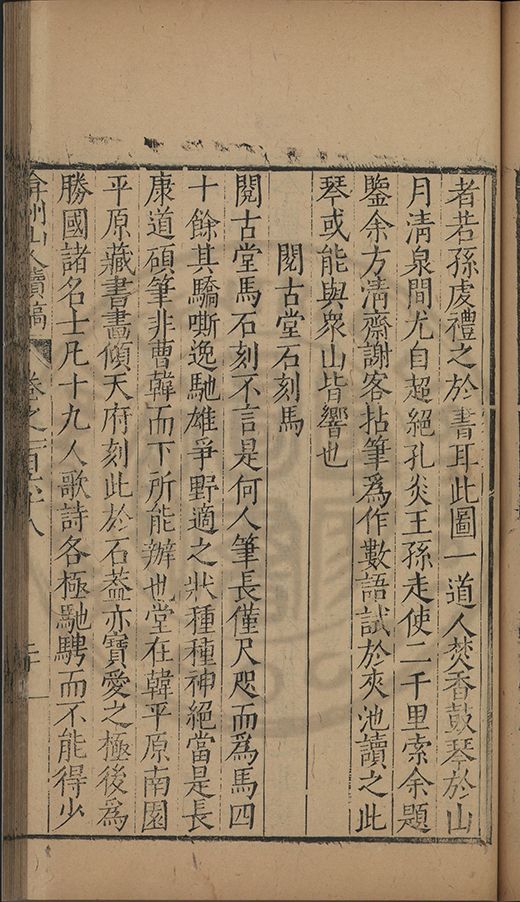 者若孫虔禮之於書耳此圖一道人焚香鼓琴於山
月清泉間尤自超絕孔炎王孫走使二千里索余題
鑒余方清齋謝客拈筆爲作數語試於夾池讀之此
琴或能與衆山皆響也
閱古堂石刻馬
閱古堂馬石刻不言是何人筆長僅尺咫而爲馬四
十餘其驕嘶逸馳雄爭野適之狀種種神絕當是長
康道碩筆非曹韓而下所能辦也堂在韓平原南園
平原藏書畫傾天府刻此於石蓋亦寶愛之極後爲
勝國諸名士凡十九人歌詩各極馳騁而不能得少
弇州山人續稿 卷之一百六十八